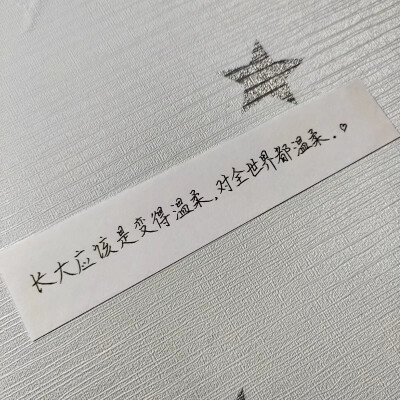 长大应该是变得温柔，对全世界都温柔.♡